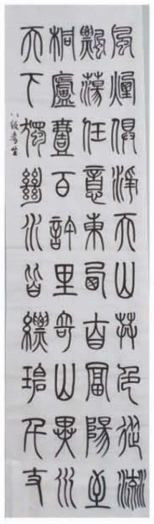 風煙俱淨天山共色從流
飄蕩任意東西自富陽至
桐廬壹百許里奇山異水
天下獨絕水皆縹碧千丈